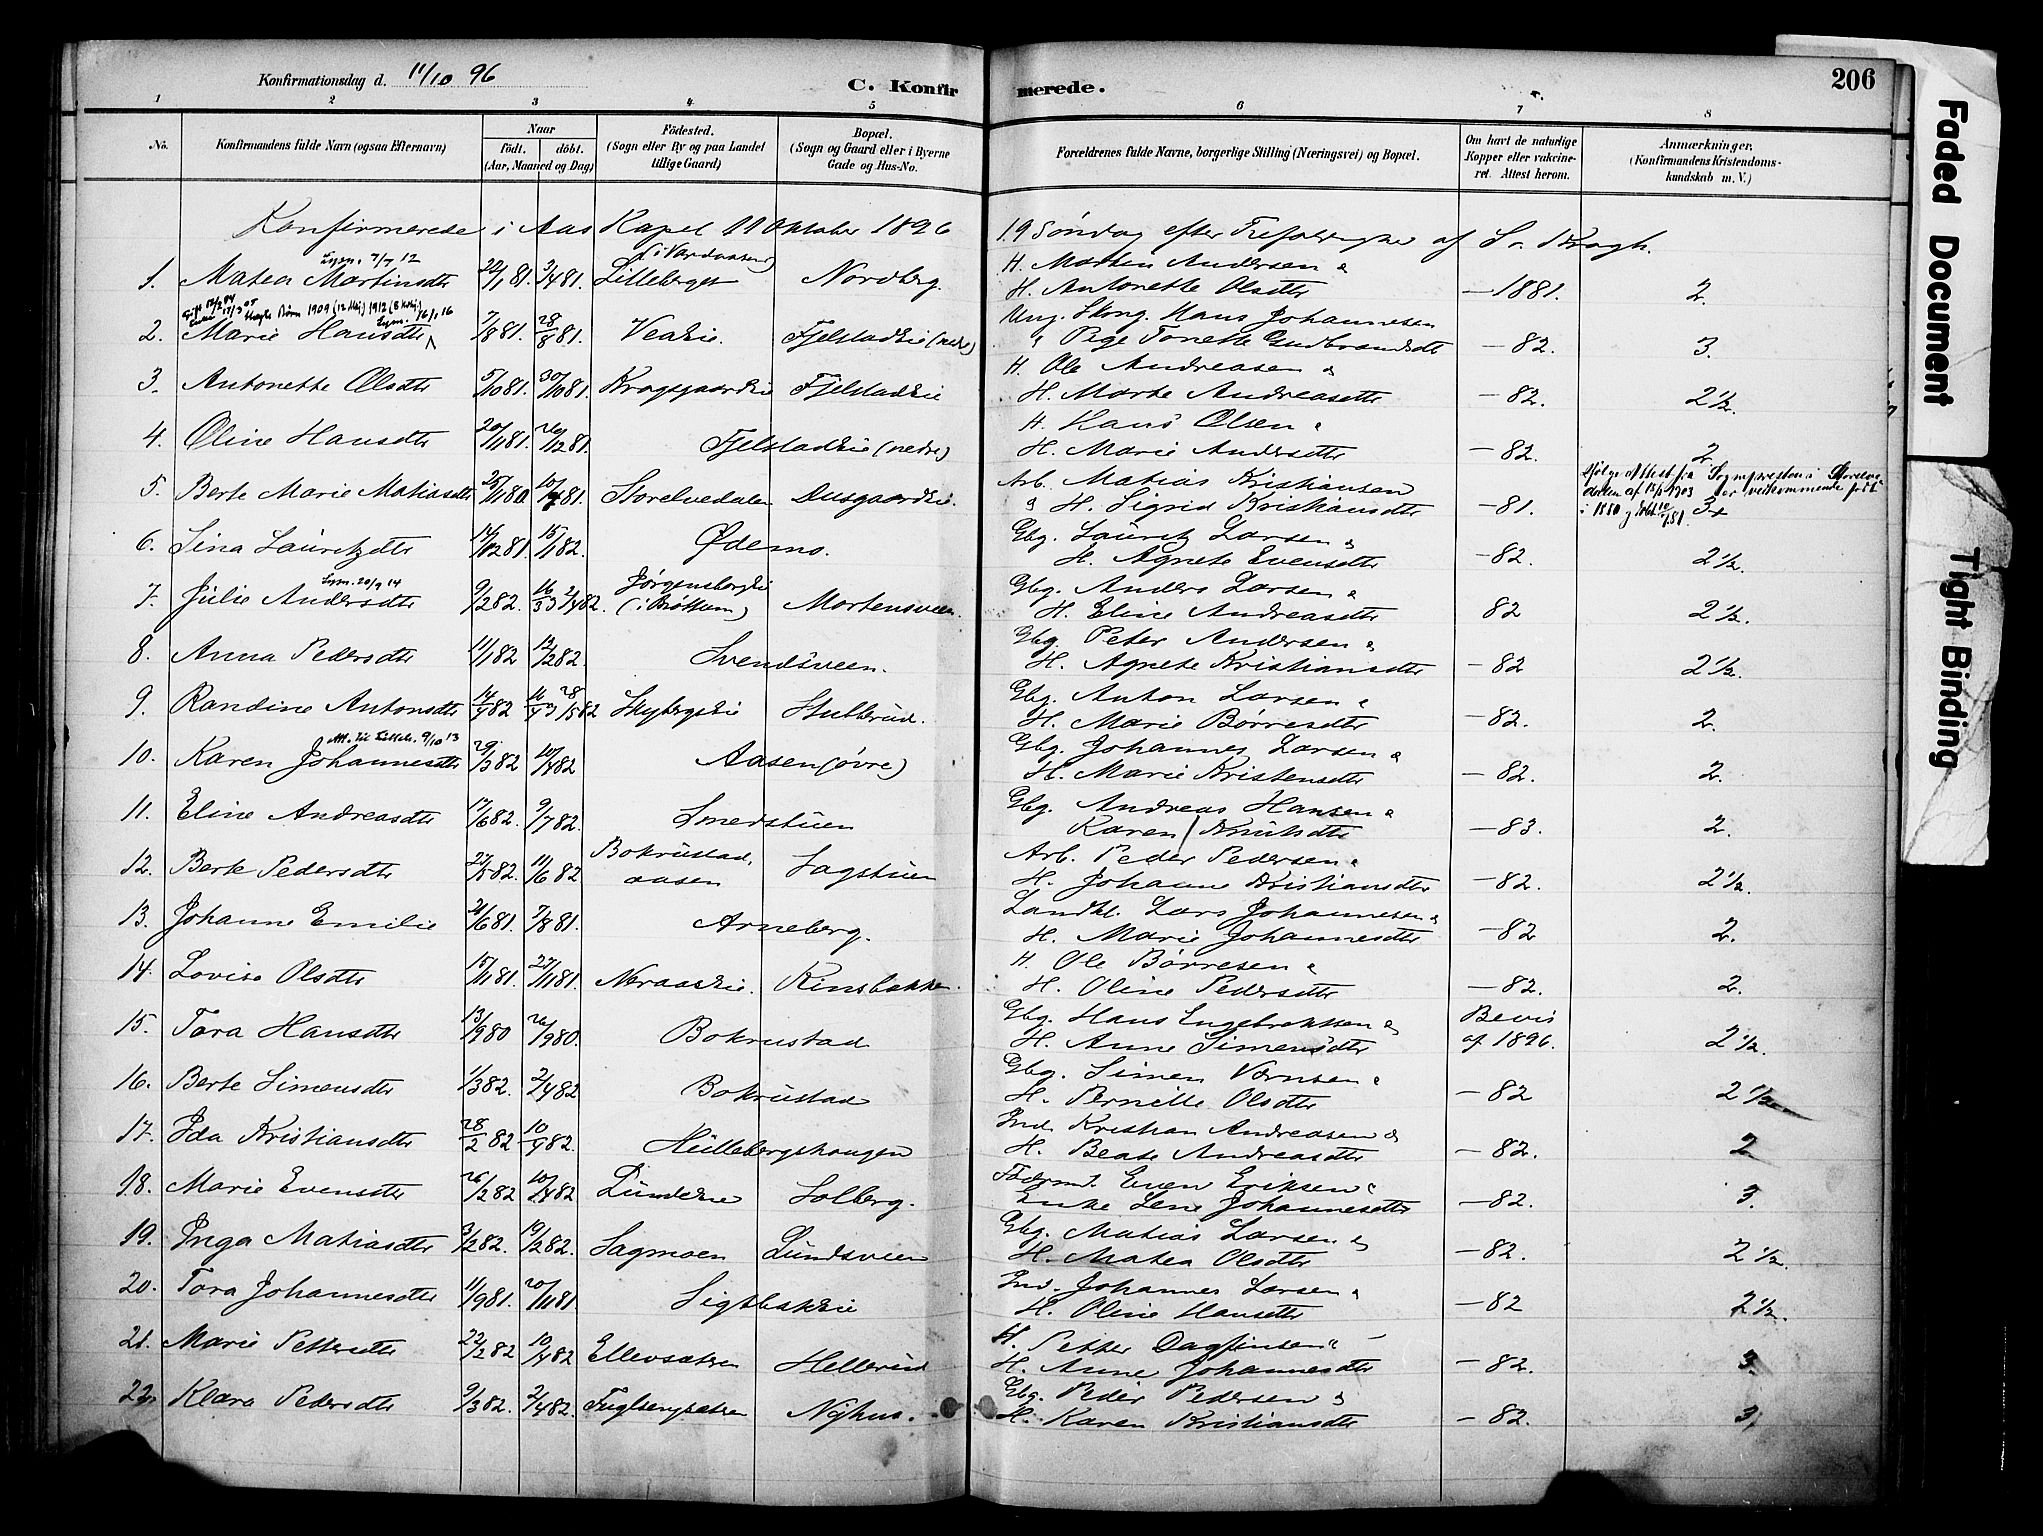 Konfirmationsdag d. 11/10 96
C. Konfirmerede.
206
1 2 3 4 5 6 7 8
No. Konfirmandens fulde Navn (ogsaa Efternavn) Naar födt. döbt. (Aar, Maaned og Dag) Födested. (Sogn eller By og paa Landet tillige Gaard) Bopæl. (Sogn og Gaard eller i Byerne Gade og Hus-No. Forældrenes fulde Navne, borgerlige Stilling (Næringsvei) og Bopæl. Om havt de naturlige Kopper eller vakcineret. Attest herom. Anmærkninger. (Konfirmandens Kristendomskundskab m. V.)
Konfirmerede i Aas Kapel 11 Oktober 1896 19 Søndag efter Trefoldighed af S. Kragh.
1. Matea Martinsdtr 22/1 81. 3/4 81. Lilleberget Nordberg. H. Martin Andersen & H. Antonette Olsdtr —1881. 2.
2. Marie Hansdtr 7/8 81. 28/8 81. Veaeie. Fjelstadeie (nedre) Ung. Skorg. Hans Johannesen & Pige Tonette Gudbrandsdtr —82. 3.
3. Antonette Olsdtr 5/10 81. 30/10 81. Kragsgaardeie Fjelstadeie H. Ole Andreasen & H. Marte Andreasdtr —82. 2½.
4. Oline Hansdtr 20/11 81. 26/12 81. Fjelstadeie (nedre) H. Hans Olsen & H. Marie Andersdtr —82. 2
5. Berte Marie Matiasdtr 25/11 80. 81. Storelvedalen Dusgaardeie. Arb. Matias Kristiansen & H. Sigrid Kristiansdtr —81. 3+
6. Sina Lauritzdtr 14/12 81. 15/1 82. Ødemo. Gbg. Lauritz Larsen & H. Agnete Evensdtr —82. 2½.
7. Julie Andersdtr 9/2 82. 16/3 2/4 82. Jørgensborgeie (i Brøttum) Mortensveen. Gbg. Anders Larsen & H. Eline Andreasdtr 82 2½.
8. Anna Pedersdtr 11/1 82 12/2 82. Svendsveen. Gbg. Peter Andersen & H. Agnete Kristiansdtr —82 2½.
9. Randine Antonsdtr 14/4 82 16/4 28/5 82 Skybergeie Stullerud. Gbg. Anton Larsen & H. Marie Børresdtr —82. 2.
10. Karen Johannesdtr 29/3 82 10/4 82 Aasen (øvre) Gbg. Johannes Larsen & H. Marie Kristensdtr —82. 2.
11. Eline Andreasdtr 17/6 82. 9/7 82. Smedstuen Gbg. Andreas Hansen & Karen Knutsdtr —83. 2.
12. Berte Pedersdtr 22/5 82. 11/6 82 Bokrustadaasen Sagstuen Arb. Peder Pedersen & H. Johanne Kristiansdtr —82. 2½.
13. Johanne Emilie 21/6 81. 7/8 81. Arneberg. Landhl. Lars Johannesen & H. Marie Johannesdtr —82 2.
14. Lovise Olsdtr 15/11 81. 27/11 81. Neraaseie. Rinsbakken. H. Ole Børresen & H. Oline Pedersdtr —82. 2.
15. Tora Hansdtr 13/9 80 26/9 80. Bokrustad Gbg. Hans Engebretsen & H. Anne Simensdtr Bevis af 1896. 2½.
16. Berte Simensdtr 1/3 82. 2/4 82 Bokrustad Gbg. Simen H. Pernille Olsdtr —82 2½
17. Ida Kristiansdtr 28/2 82 10/4 82. Hullebergshaugen Ind. Kristian Andreasen & H. Beate Andreasdtr —82. 2
18. Marie Evensdtr 26/2 82 10/4 82 Lundeie Solberg. Even Eriksen & Enke Lene Johannesdtr —82. 3.
19. Inga Matiasdtr 3/2 82. 19/2 82. Sagmoen Lundsveen Gbg. Matias Larsen & H. Matea Olsdtr —82. 2½.
20. Tora Johannesdtr 11/9 81. 20/11 81 Sigtbakeie Ind. Johannes Larsen & H. Oline Hansdtr —82 2½.
21. Marie Pettersdtr 22/2 82 10/4 82 Ellevsæteren Hellerud H. Petter Dagfinsen & H. Anne Johannesdtr —82. 3.
22. Klara Pedersdtr 9/3 82. 2/4 82. Fuglsengsætren Nyhus. Gbg. Peder Pedersen & H. Karen Kristiansdtr —82. 3
Faded Document
Tight Binding